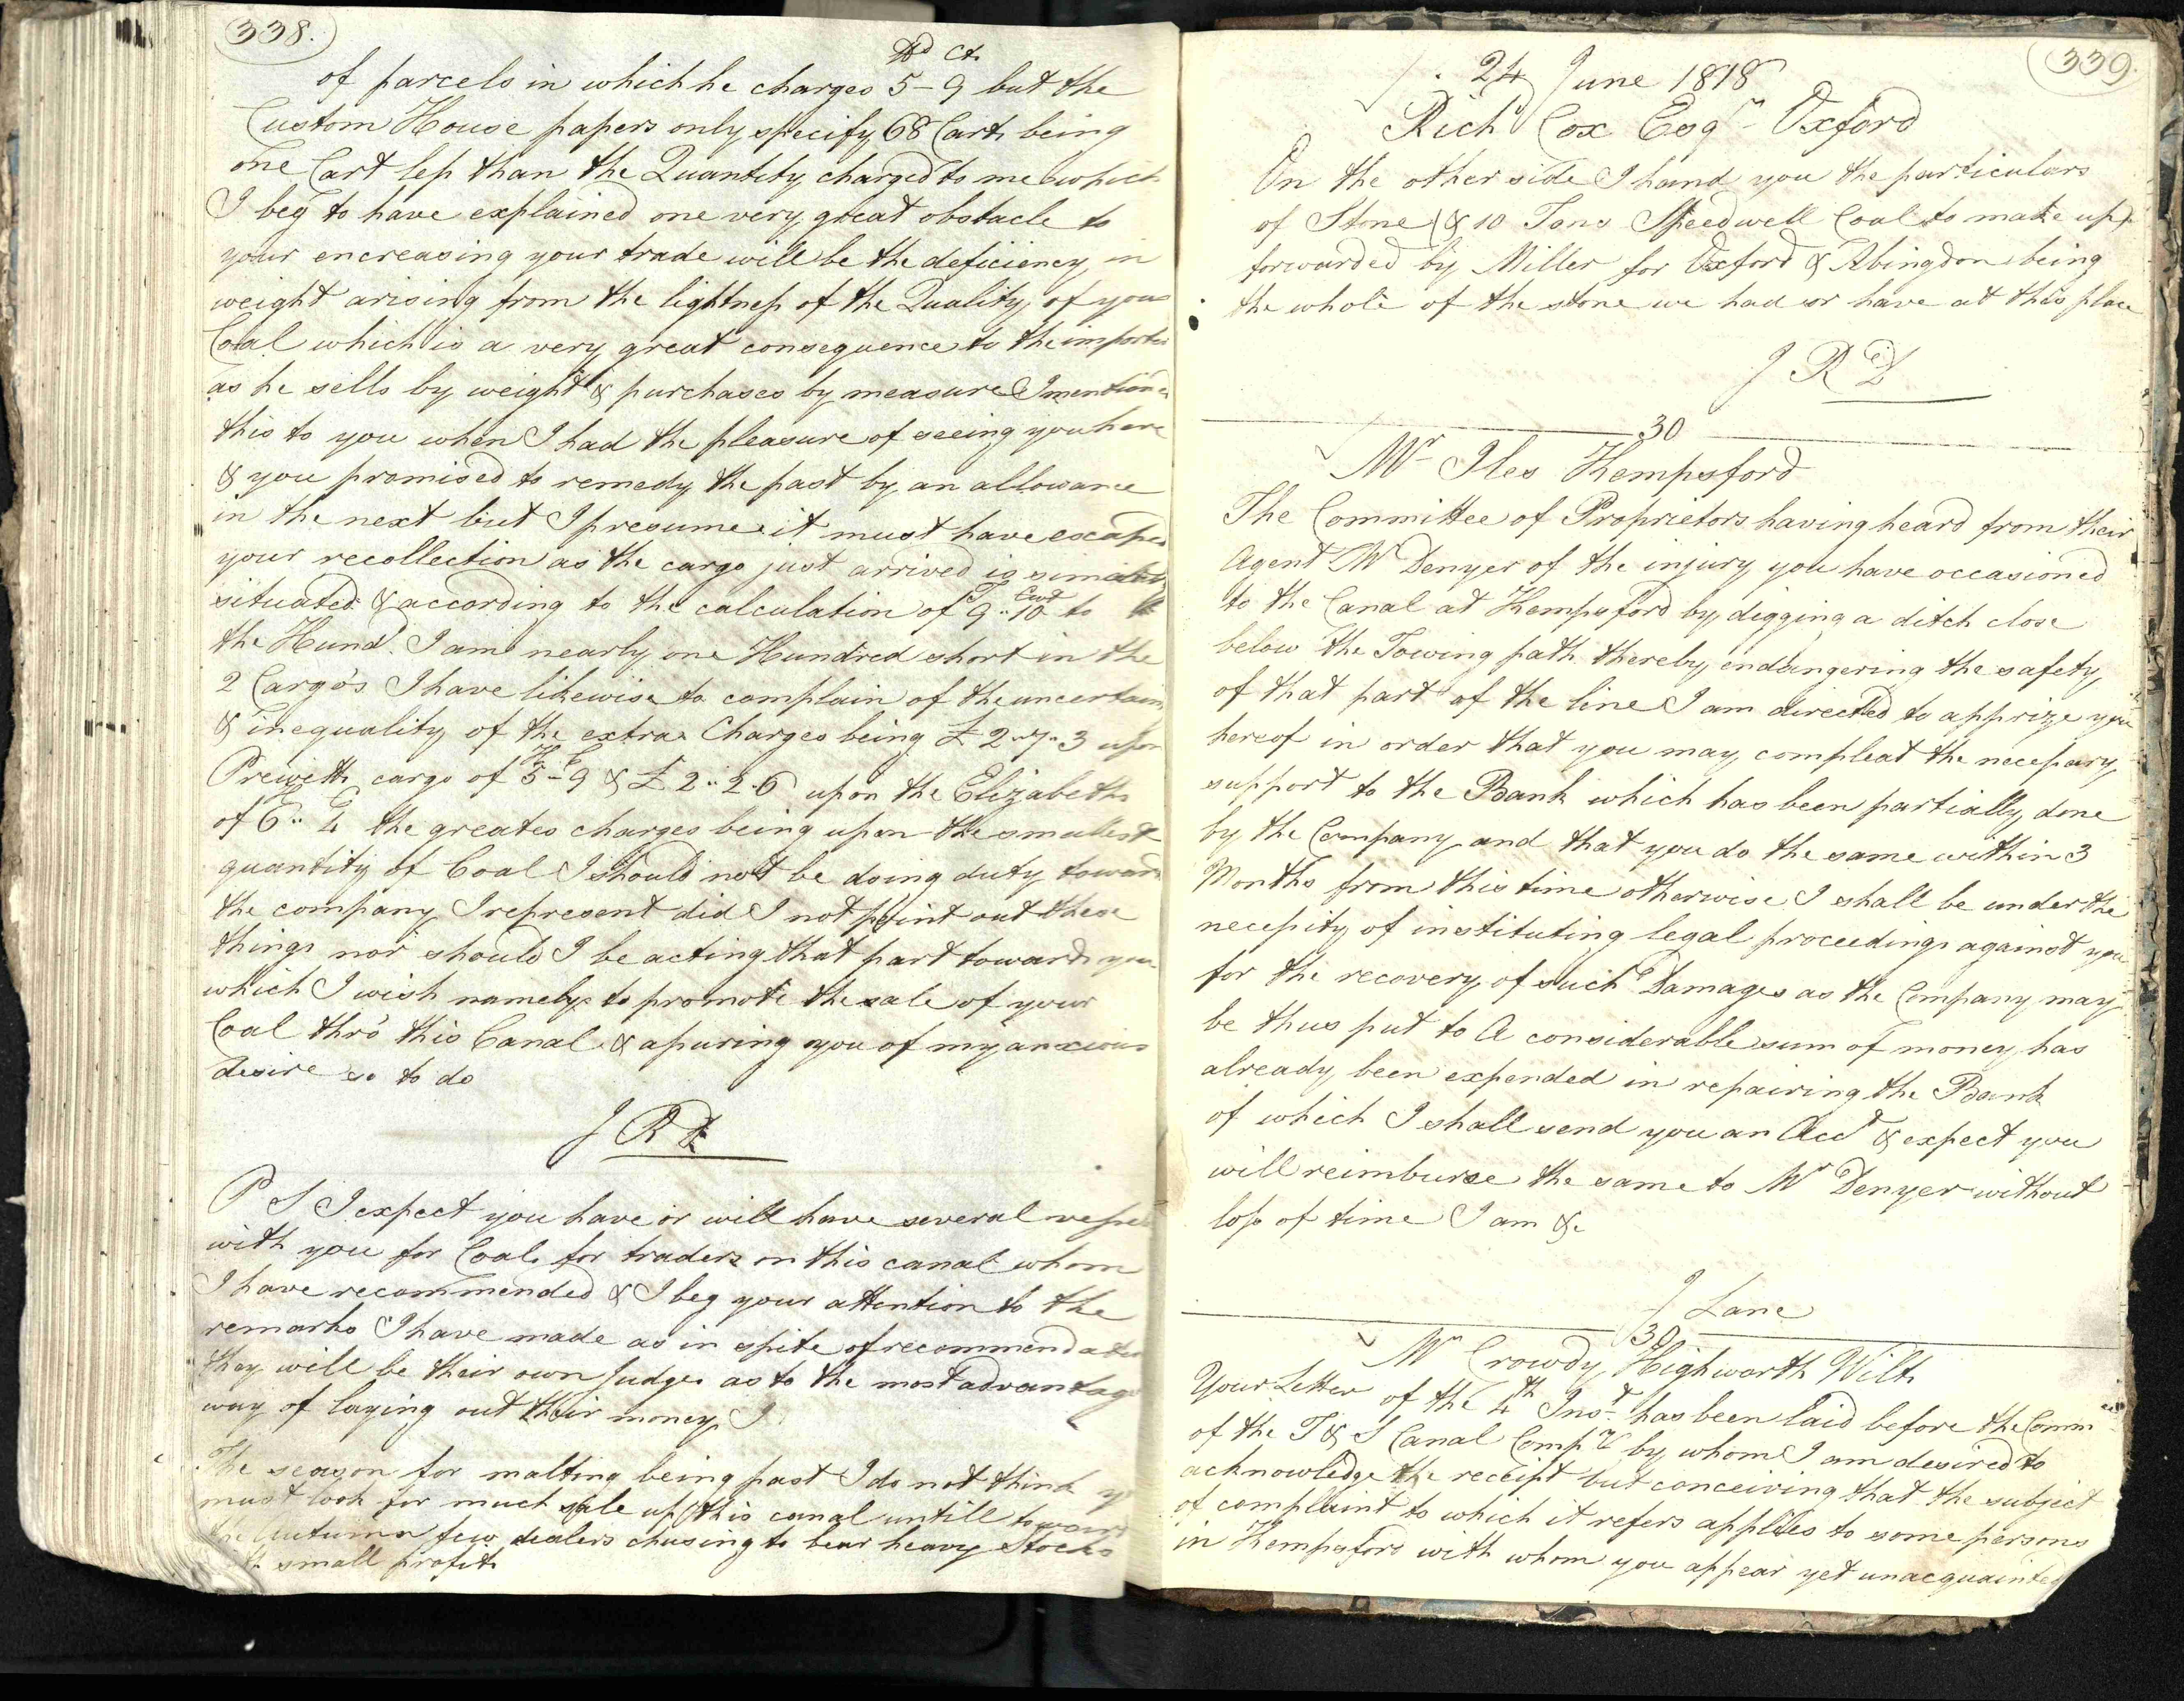 338.
Hd Ct.
of parcels in which he charges 5-9 but the
Custom House papers only specify 68 Carts being
one Cart less than the Quantity charged to me which
I beg to have explained one very great obstacle to
your encreasing your trade will be the deficiency in
weight arising from the lightness of the Quality of your
Coal which is a very great consequence to the importer
as he sells by weight & purchases by measure I mentioned
this to you when I had the pleasure of seeing you here
& you promised to remedy the past by an allowance
in the next but I presume it must have escaped
your recollection as the cargo just arrived is similarly
situated & according to the calculation of 9 T.. 10 Cwt to
the Hund. I am nearly one Hundred short in the
2 Cargo's I have likewise to complain of the uncertain
& inequality of the extra Charges being £ 2..7..3 upon
Prewetts cargo of 5-9 & £ 2..2.6 upon the Elizabeths
of 6.. 4 the greates charges being upon the smallest
quantity of Coal I should not be doing duty toward
the company I represent did I not point out these
things nor should I be acting that part towards you
which I wish namely to promote the sale of your
Coal thro' this Canal & assuring you of my anxious
desire so to do
J R D
P S I expect you have or will have several vessels
with you for Coal for traders on this canal whom
I have recommended & I beg your attention to the
remarks I have made as in spite of recommendation
they will be their own Judges as to the most advantag
way of laying out their money I
The season for malting being past I do not think y
must look for much sale up this canal untill toward
the Autumn few dealers chusing to bear heavy Stocks
small profits
339.
24 June 1818
Richd Cox Esqr Oxford
On the other side I hand you the particulars
of Stone (& 10 Tons Speedwell Coal to make up)
forwarded by Miller for Oxford & Abingdon being
the whole of the stone we had or have at this place
J R D
30
Mr Iles Kempsford
The Committee of Proprietors having heard from their
Agent Mr Denyer of the injury you have occasioned
to the Canal at Kempsford by digging a ditch close
below the Towing path thereby endangering the safety
of that part of the line I am directed to apprize you
hereof in order that you may compleat the necessary
support to the Bank which has been partially done
by the Company and that you do the same within 3
Months from this time otherwise I shall be under the
necessity of instituting legal proceedings against you
for the recovery of such Damages as the Company may
be thus put to A considerable sum of money has
already been expended in repairing the Bank
of which I shall send you an Acct & expect you
will reimburse the same to Mr Denyer without
loss of time I am &c
J Lane
30
Mr Crowdy Highworth Wilts
Your Letter of the 4th Inst has been laid before the Comm
of the T & S Canal Compy by whom I am desired to
acknowledge the receipt but conceiving that the subject
of complaint to which it refers applies to some persons
in Kempsford with whom you appear yet unacquainted